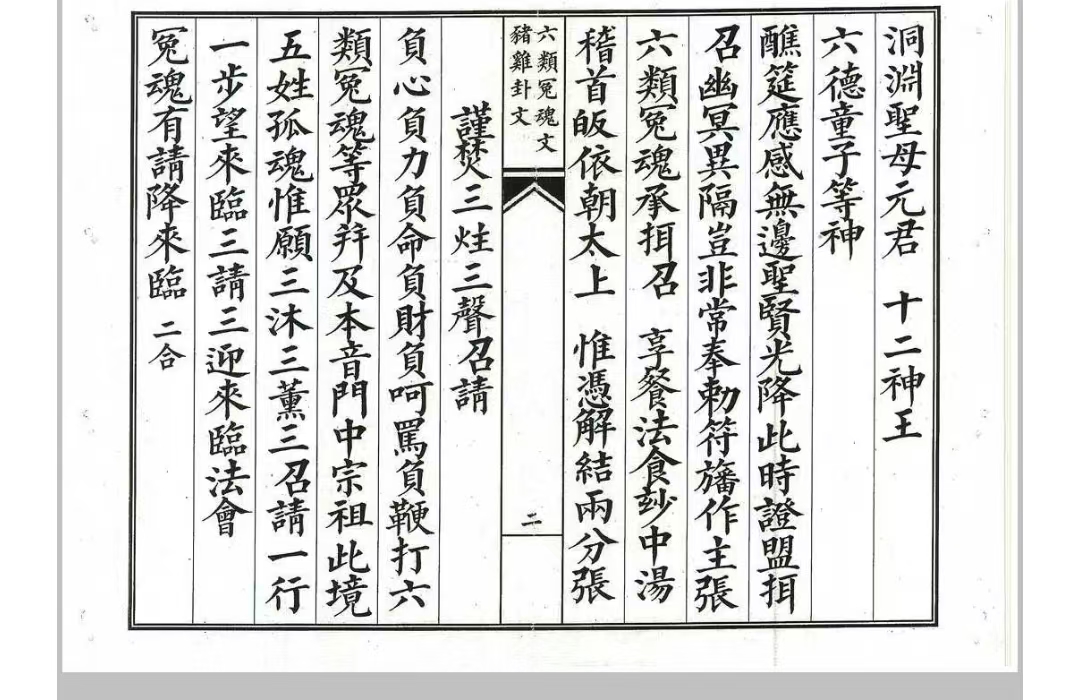 洞淵聖母元君　十二神王
六德童子等神
醮筵應感無邊聖賢光降此時證盟拜
召幽冥異隔豈非常奉勅符旛作主張
六類冤魂承拜召　享餐法食玅中湯
稽首皈依朝太上　惟憑解結兩分張
六類冤魂文
豬雞卦文
二
謹焚三炷三聲召請
負心負力負命負財負呵罵負鞭打六
類冤魂等眾并及本音門中宗祖此境
五姓孤魂惟願三沐三薰三召請一行
一步望來臨三請三迎來臨法會
冤魂有請降來臨　二合